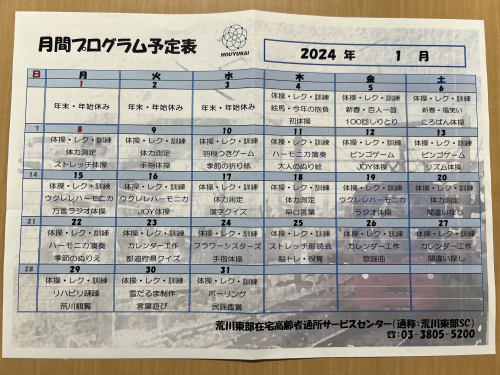 月間プログラム予定表
HOUYUKAI
2024 年 1 月
日 月 火 水 木 金 土
1 2 3 4 5 6
年末・年始休み 年末・年始休み 年末・年始休み 体操・レク・訓練 体操・レク・訓練 体操・レク・訓練
絵馬・今年の抱負 新春・百人一首 新春・福笑い
初体操 100回しりとり ころばん体操
7 8 9 10 11 12 13
体操・レク・訓練 体操・レク・訓練 体操・レク・訓練 体操・レク・訓練 体操・レク・訓練 体操・レク・訓練
体力測定 体力測定 羽根つきゲーム ハーモニカ演奏 ビンゴゲーム ビンゴゲーム
ストレッチ体操 手指体操 季節の折り紙 大人のぬり絵 JOY体操 リズム体操
14 15 16 17 18 19 20
体操・レク・訓練 体操・レク・訓練 体操・レク・訓練 体操・レク・訓練 体操・レク・訓練 体操・レク・訓練
ウクレレハーモニカ ウクレレハーモニカ 体力測定 体力測定 ウクレレハーモニカ 体力測定
方言ラジオ体操 JOY体操 漢字クイズ 早口言葉 ラジオ体操 間違い探し
21 22 23 24 25 26 27
体操・レク・訓練 体操・レク・訓練 体操・レク・訓練 体操・レク・訓練 体操・レク・訓練 体操・レク・訓練
ハーモニカ演奏 カレンダー工作 フラワーシスターズ ストレッチ朗読会 カレンダー工作 カレンダー工作
季節のぬりえ 都道府県クイズ 手指体操 脳トレ・視覚 歌謡曲 間違い探し
28 29 30 31
体操・レク・訓練 体操・レク・訓練 体操・レク・訓練
リハビリ踊躍 雪だるま制作 ボーリング
荒川観覧 言葉遊び 民謡鑑賞
荒川東部在宅高齢者通所サービスセンター(通称:荒川東部SC)
☎:03-3805-5200